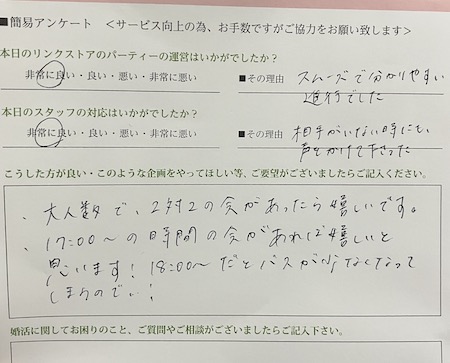 ■簡易アンケート ＜サービス向上の為、お手数ですがご協力をお願い致します＞
本日のリンクストアのパーティーの運営はいかがでしたか？
非常に良い・良い・悪い・非常に悪い ■その理由 スムーズで分かりやすい
進行でした
本日のスタッフの対応はいかがでしたか？
非常に良い・良い・悪い・非常に悪い ■その理由 相手がいない時にも、
声をかけて下さった
こうした方が良い・このような企画をやってほしい等、ご要望がございましたらご記入ください。
・大人数で、2対2の会があったら嬉しいです。
・17:00〜の時間の会があれば嬉しいと
思います！18:00〜だとバスが少なくなって
しまうので…！
婚活に関してお困りのこと、ご質問やご相談がございましたらご記入下さい。